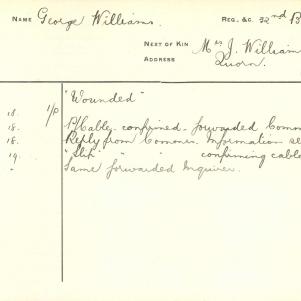 NAME George Williams. REG. &C. 32nd B
NEXT OF KIN Mrs J. William
ADDRESS Quorn.
"Wounded"
18. 1/P P/Cable confirmed. forwarded Comm
18. Reply from Common. Information se
19. "Slip" " " confirming cable
" Same forwarded Inquirer.